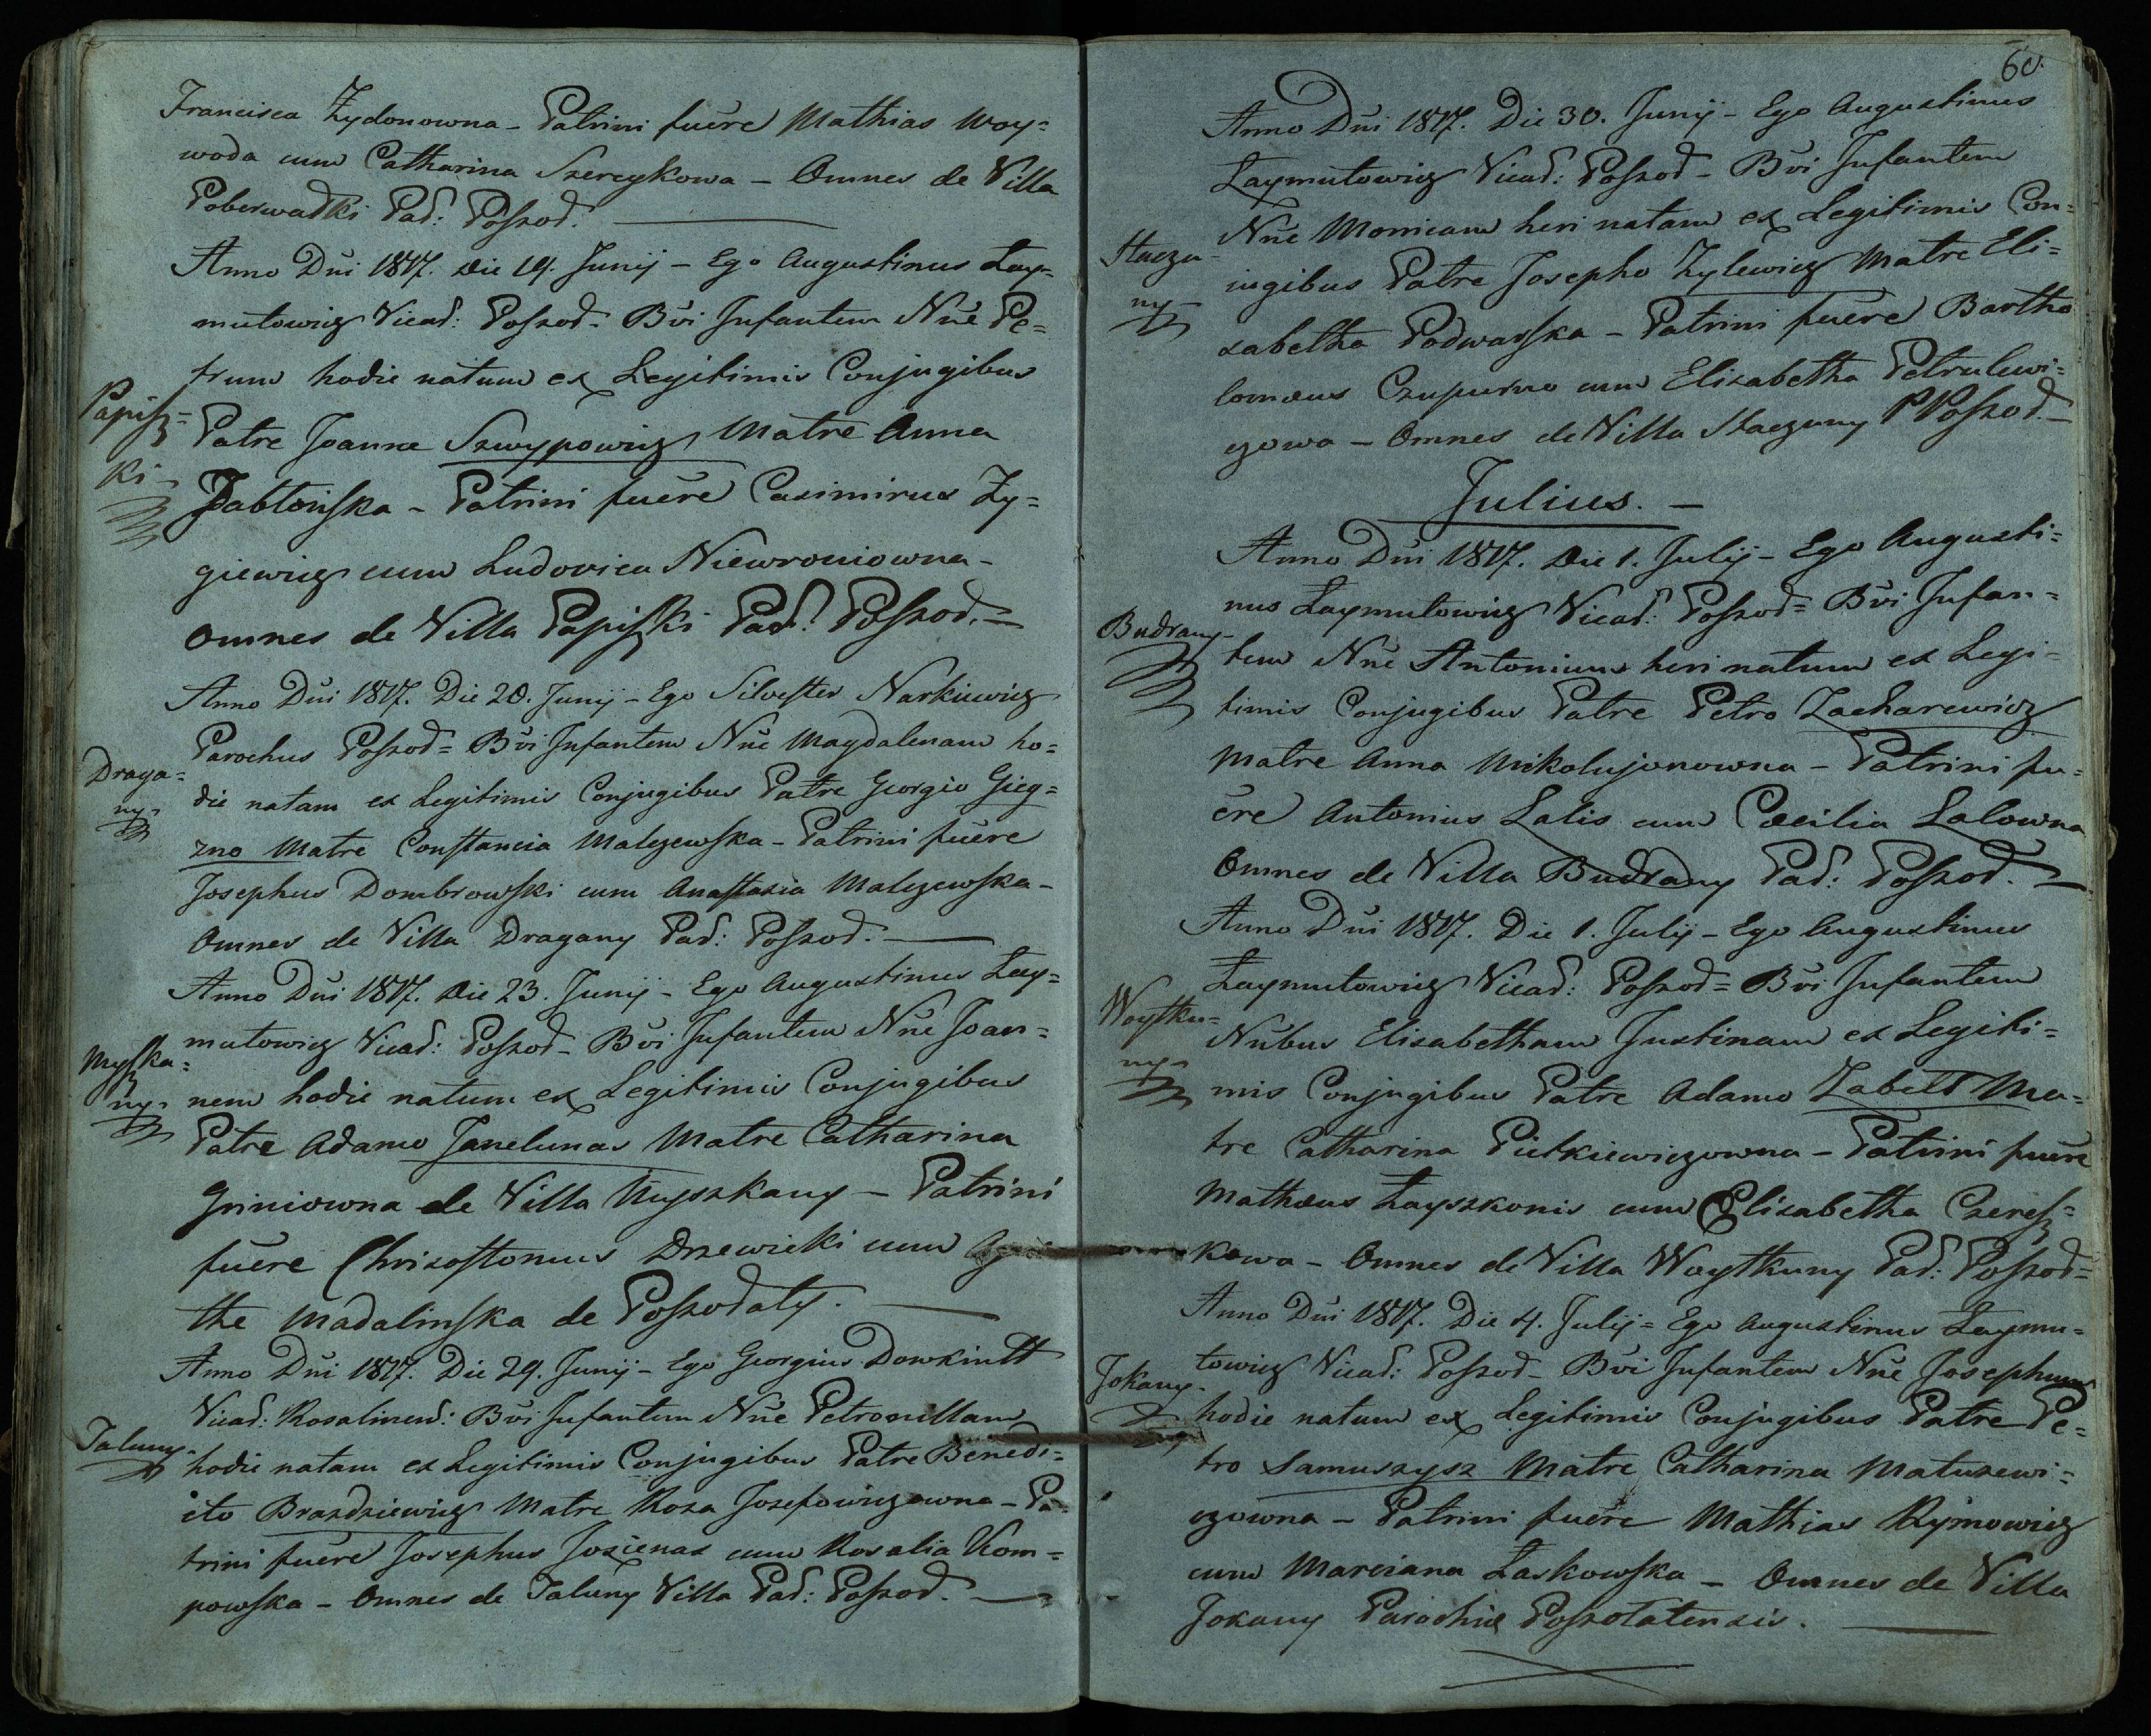 Francisca Zydonowna - Patrini fuere Mathias Woy=
woda cum Catharina Szereykowa - Omnes de Villa
Poberwadki Pad: Poszod.
Anno Dni 1817. Die 19. Junij - Ego Augustinus Łay=
mutowicz Vicad: Poszod - Bvi Infantem Nne Pe=
trum hodie natum ex Legitimis Conjugibus
Papisz=
ki
Patre Joanne Szwypowicz Matre Anna
Jabłońska - Patrini fuere Casimirus Zy=
giewicz cum Ludovica Niewroniowna -
Omnes de Villa Papiszki Pad: Poszod. -
Anno Dni 1817. Die 20. Junij - Ego Silvester Narkiewicz
Parochus Poszod = Bvi Infantem Nne Magdalenam ho=
Draga=
ny
die natam ex Legitimis Conjugibus Patre Georgio Gieg=
zno Matre Constancia Malczewska - Patrini fuere
Josephus Dombrowski cum Anastazia Malczewska -
Omnes de Villa Dragany Pad: Poszod.
Anno Dni 1817. Die 23. Junij - Ego Augustinus Łay=
mutowicz Vicad: Poszod - Bvi Infantem Nne Joan=
Myszka=
ny
nem hodie natum ex Legitimis Conjugibus
Patre Adamo Janelunas Matre Catharina
Griniowna de Villa Myszkany - Patrini
fuere Chrisostomus Drzewicki cum
the Madalinska de Poszodaty.
Anno Dni 1817. Die 29. Junij - Ego Georgius Dowkintt
Vicad: Rosalinen: Bvi Infantem Nne Petronillam
Taluny
hodie natam ex Legitimis Conjugibus Patre Benedi=
cto Brazdziewicz Matre Roza Josefowiczowna - Pa=
trini fuere Josephus Jozienas cum Rosalia Kom=
powska - Omnes de Taluny Villa Pad: Poszod.
60.
Anno Dni 1817. Die 30. Junij - Ego Augustinus
Łaymutowicz Vicad: Poszod - Bvi Infantem
Nne Monicam heri natam ex Legitimis Con=
Staczu=
ny
iugibus Patre Josepho Zylewicz Matre Eli=
zabetha Podwarska - Patrini fuere Bartho
lomæus Czupurno cum Elisabetha Petrulewi=
czowa - Omnes de Villa Staczuny P Poszod. -
Julius. -
Anno Dni 1817. Die 1. Julij - Ego Augusti=
nus Łaymutowicz Vicad: Poszod = Bvi Infan=
Budrany
tem Nne Antonium heri natum ex Legi=
timis Conjugibus Patre Petro Zacharewicz
Matre Anna Mikolujonowna - Patrini fu=
ere Antonius Lalis cum Cæcilia Lalowna
Omnes de Villa Budrany Pad: Poszod. -
Anno Dni 1817. Die 1. Julij - Ego Augustinus
Łaymutowicz Vicad: Poszod = Bvi Infantem
Woytku=
ny
Nnbus Elisabetham Justinam ex Legiti=
mis Conjugibus Patre Adamo Zabell Ma=
tre Catharina Pietkiewiczowna - Patrini fuere
Mathæus Łayszkonis cum Elisabetha Czeresz=
kowa - Omnes de Villa Woytkuny Pad: Poszod =
Anno Dni 1817. Die 4. Julij = Ego Augustinus Łaymu=
towicz Vicad: Poszod - Bvi Infantem Nne Josephum
Jokany
hodie natum ex Legitimis Conjugibus Patre Pe=
tro Samuszysz Matre Catharina Matuzewi=
czowna - Patrini fuere Mathias Rymowicz
cum Marciana Łaskowska - Omnes de Villa
Jokany Parochiæ Poszotatensis.